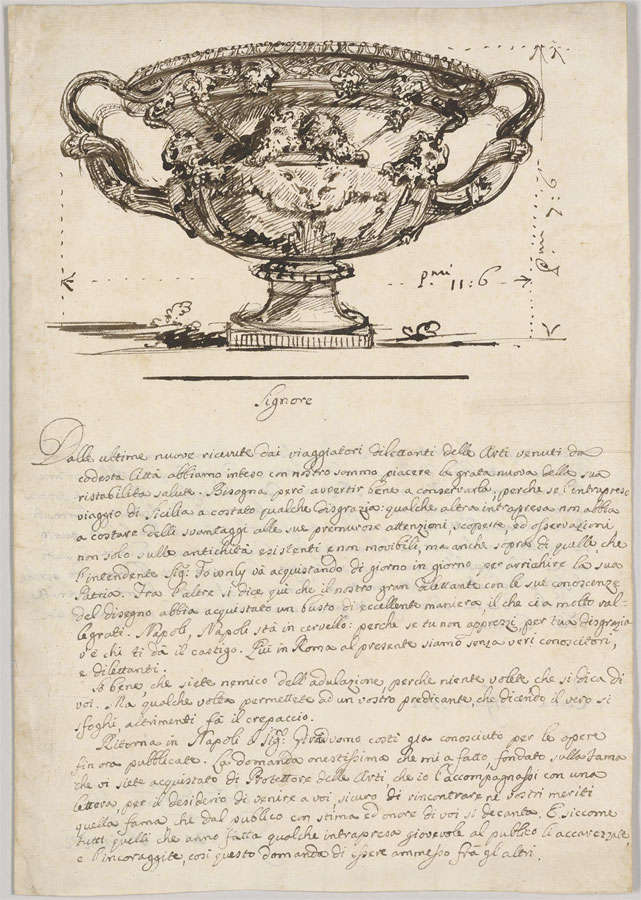 P.mi 7:6
P.mi 11:6
Signore
Dalle ultime nuove ricevute dai viaggiatori dilettanti delle Arti venuti da
codesta Città abbiamo inteso con nostro sommo piacere la grata nuova della sua
ristabilita salute. Bisogna però avertir bene a conservarla, perche se l'intrapreso
viaggio di Sicilia a costato qualche disgrazia: qualche altra intrapresa non abbia
a costare delli svantaggi alle sue premurose attenzioni, scoperte, ed osservazioni
non solo sulle antichità esistenti e non movibili, ma anche sopra di quelle che
l'intendente Sig.r Townly và acquistando di giorno in giorno per arrichire la sua
Patria. Fra l'altre si dice quì che il nostro gran dilettante con le sue conoscenze
del disegno abbia acquistato un busto di eccellente maniera, il che ci a molto ral-
legrati. Napoli, Napoli stà in cervello: perche se tu non apprezzi, per tua disgrazia
v'è chi ti dà il castigo. Quì in Roma al presente siamo senza veri conoscitori,
e dilettanti.
Sò bene, che siete nemico dell'adulazione, perche niente volete che si dica di
voi. Ma qualche volta permettete ad un vostro predicante, che dicendo il vero si
sfoghi, altrimenti fà il crepaccio.
Ritorna in Napoli il Sig.r costì già conosciuto per le opere
fin ora pubblicate. La domanda onestissima che mi a fatto, fondato sulla fama
che vi siete acquistato di Protettore delle Arti che io l'accompagnassi con una
lettera, per il desiderio di venire a voi, sicuro di rincontrare ne vostri meriti
quella fama che dal publico con stima ed onore di voi si decanta. E siccome
tutti quelli che anno fatta qualche intrapresa giovevole al publico li accarezzate,
e l'incoraggite, così questo domanda di essere ammesso frà gl'altri.